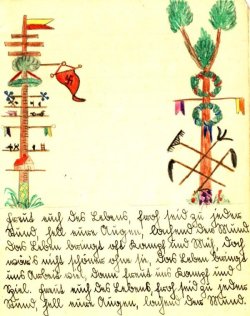 Freut euch des Lebens, froh seid zu jeder
Stund, hell eure Augen, lachend der Mund
Das Leben bringt oft Kampf und Müh, doch
wär's nicht schöner ohne sie, das Leben bringt
uns Arbeit viel, dann freut uns Kampf und
Spiel. Freut euch des Lebens, froh seid zu jeder
Stund, hell eure Augen, lachend der Mund.